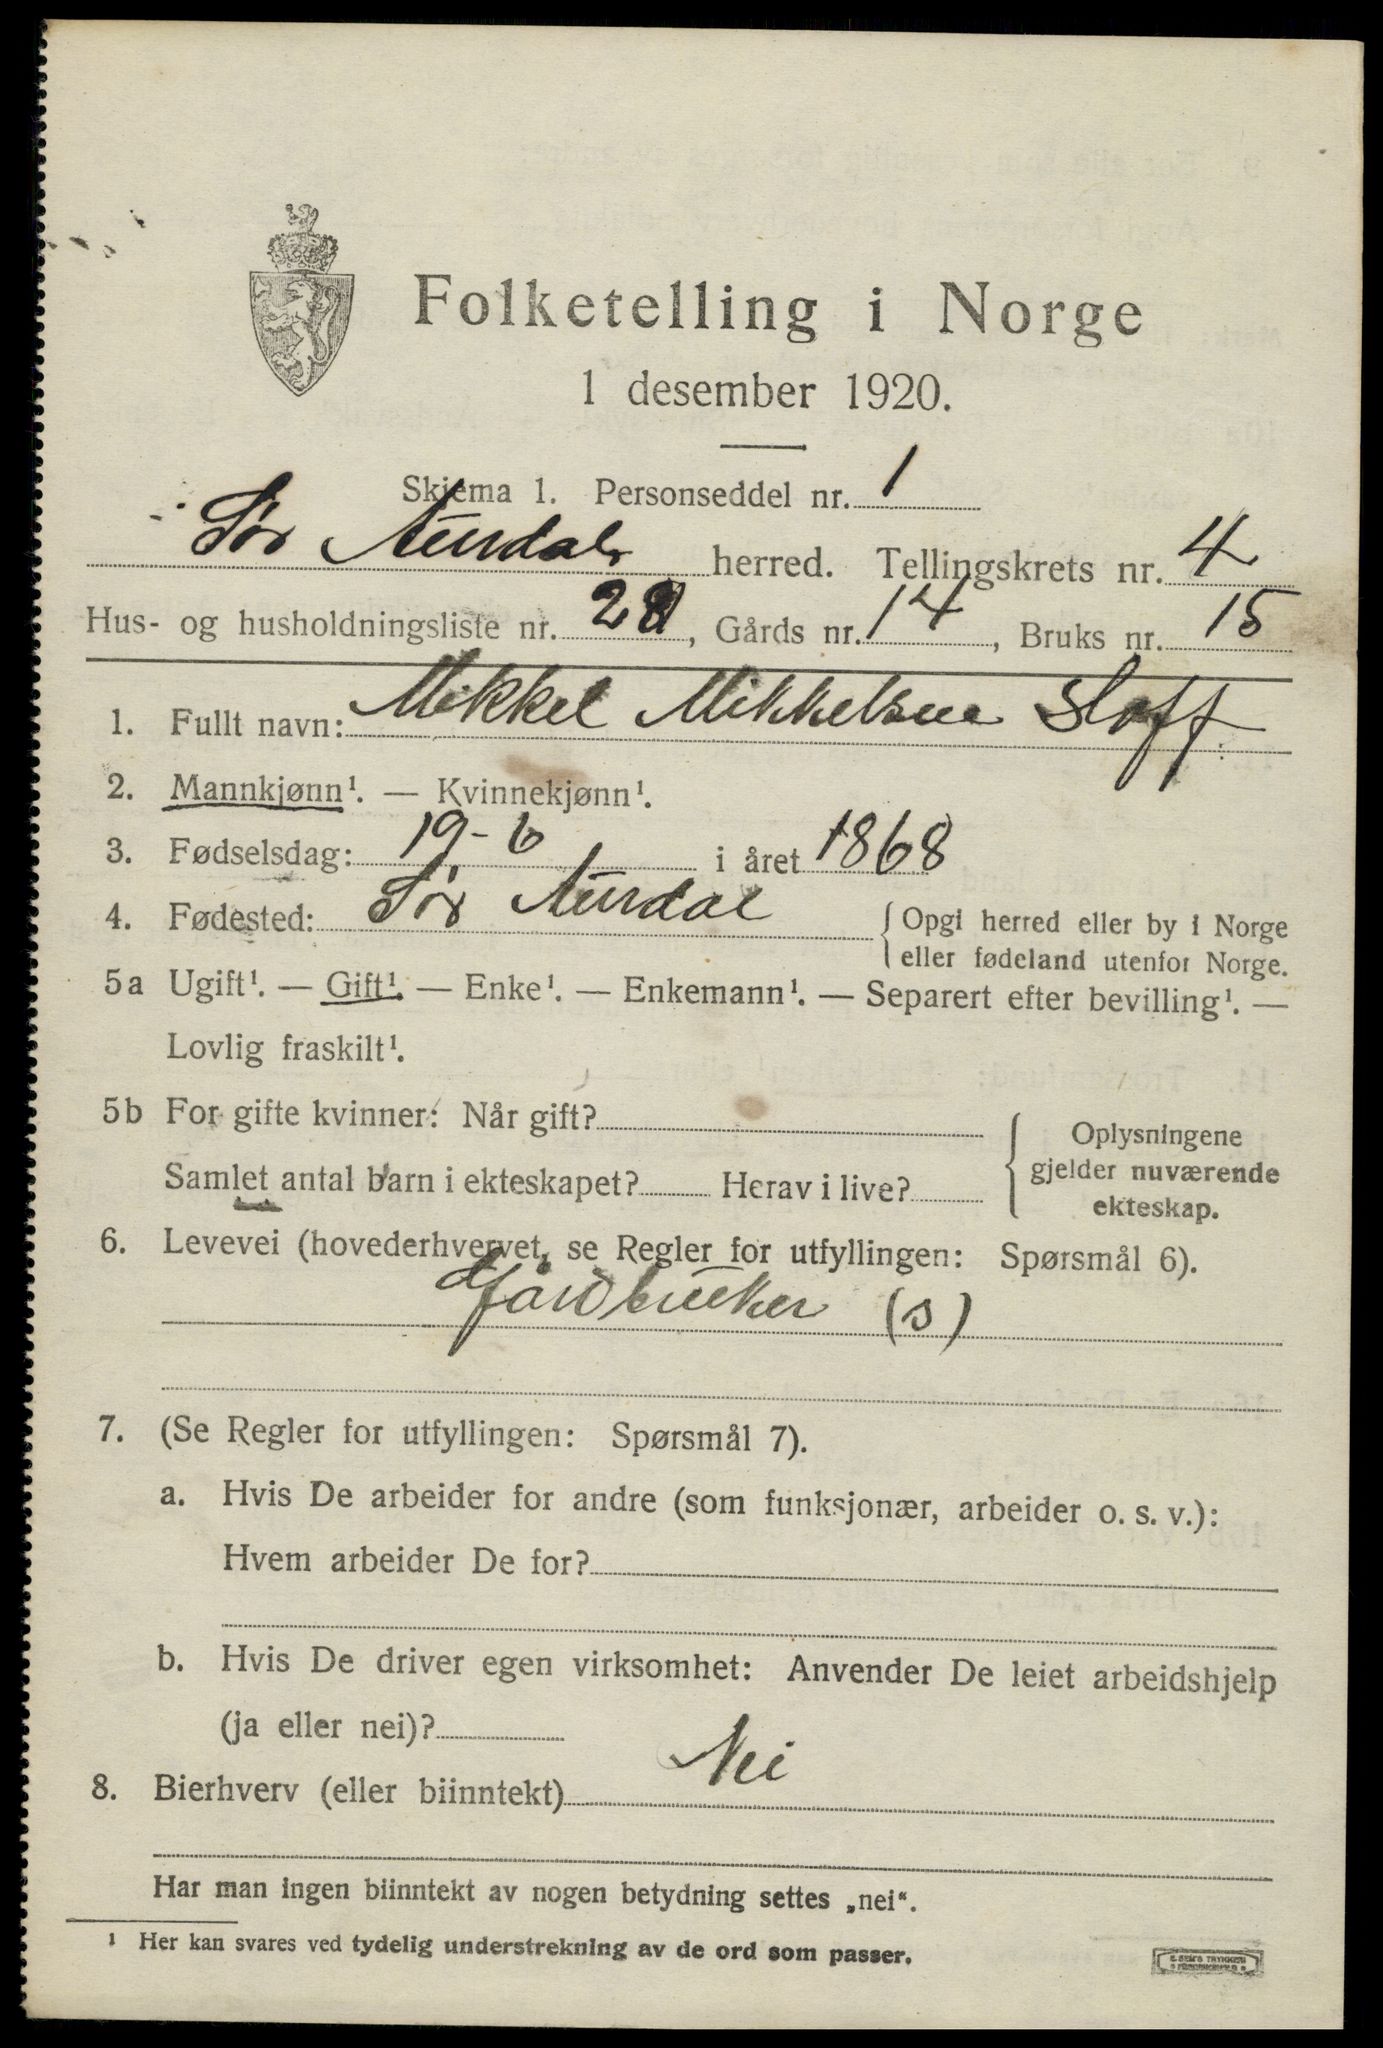 Folketelling i Norge
1 desember 1920.
Skjema 1. Personseddel nr. 1
Sør Aurdal herred. Tellingskrets nr. 4
Hus- og husholdningsliste nr. 28, Gårds nr. 14, Bruks nr. 15
1. Fullt navn: Mikkel Mikkelsen
2. Mannkjønn¹. — Kvinnekjønn¹.
3. Fødselsdag: 19-6 i året 1868
4. Fødested: Sør Aurdal {Opgi herred eller by i Norge
eller fødeland utenfor Norge.
5a Ugift¹. — Gift¹. — Enke¹. — Enkemann¹. — Separert efter bevilling¹. —
Lovlig fraskilt¹.
5b For gifte kvinner: Når gift?
Samlet antal barn i ekteskapet? Herav i live?
{Oplysningene
gjelder nuværende
ekteskap.
6. Levevei (hovederhvervet, se Regler for utfyllingen: Spørsmål 6).
Jordbruker (s)
7. (Se Regler for utfyllingen: Spørsmål 7).
a. Hvis De arbeider for andre (som funksjonær, arbeider o. s. v.):
Hvem arbeider De for?
b. Hvis De driver egen virksomhet: Anvender De leiet arbeidshjelp
(ja eller nei)?
8. Bierhverv (eller biinntekt) Nei
Har man ingen biinntekt av nogen betydning settes „nei“.
¹ Her kan svares ved tydelig understrekning av de ord som passer.